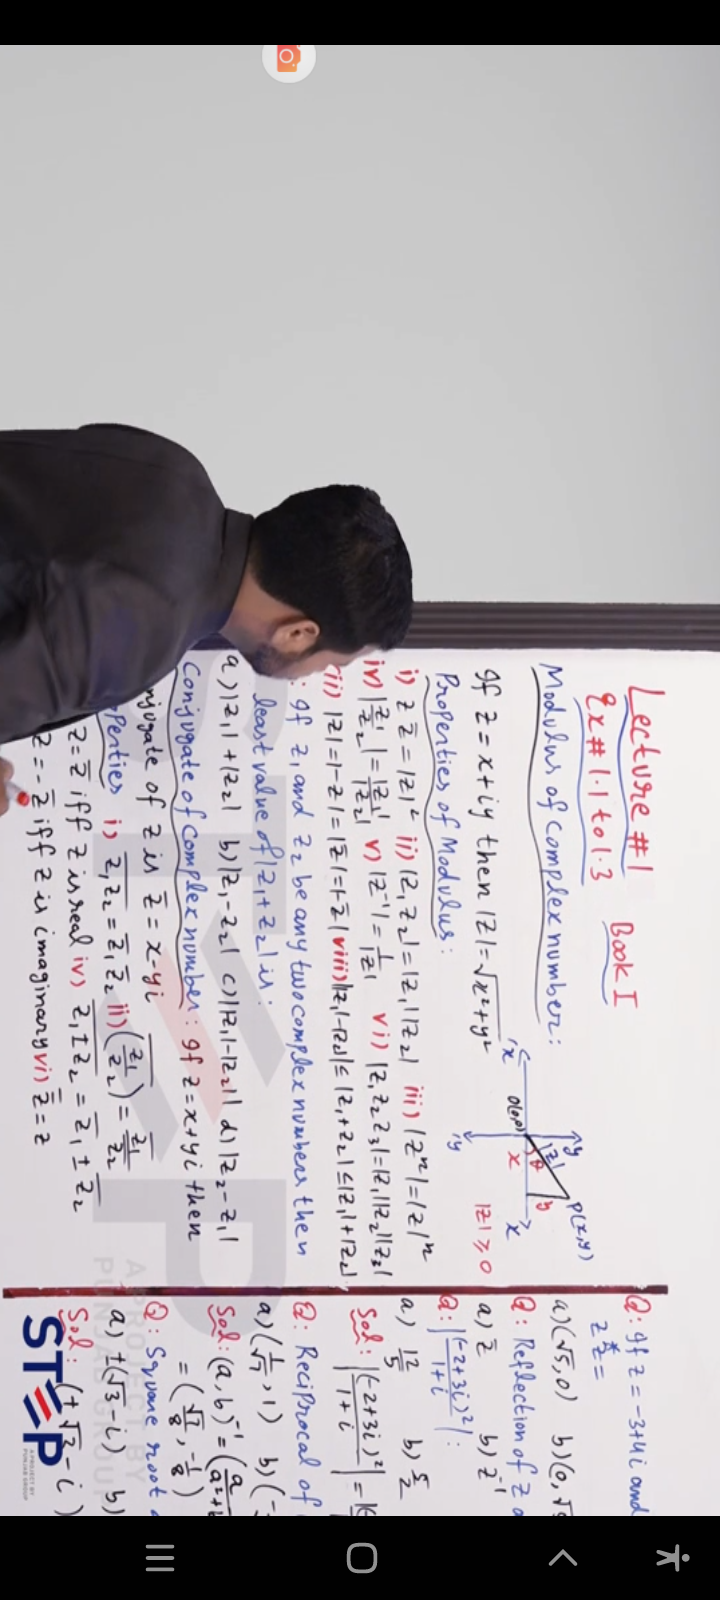 Lecture #1
Ex#1.1 to 1.3 Book I
Modulus of Complex number:
If z = x+iy then |z| = √x²+y²
y
P(x,y)
|z|
θ
y
x' O(0,0) x x
y'
|z| ≥ 0
Properties of Modulus:
i) z z̄ = |z|² ii) |z₁z₂| = |z₁||z₂| iii) |zⁿ| = |z|ⁿ
iv) |z₁/z₂| = |z₁|/|z₂| v) |z⁻¹| = 1/|z| vi) |z₁z₂z₃| = |z₁||z₂||z₃|
|z| = |-z| = |z̄| = |-z̄| viii) |z₁|-|z₂| ≤ |z₁+z₂| ≤ |z₁|+|z₂|
: If z₁ and z₂ be any two complex numbers then
least value of |z₁+z₂| is:
a) |z₁|+|z₂| b) |z₁-z₂| c) ||z₁|-|z₂|| d) |z₂-z₁|
Conjugate of Complex number: If z = x+yi then
njugate of z is z̄ = x-yi
perties i) z̄₁z̄₂ = z̄₁ z̄₂ ii) (z₁/z₂) = z̄₁/z̄₂
z = z̄ iff z is real iv) z₁±z₂ = z̄₁ ± z̄₂
z = -z̄ iff z is imaginary vi) z̿ = z
Q: If z = -3+4i and
a) (√5,0)
Q: Reflection of z
a) z̄ b) z⁻¹
Q: |(-2+3i)²/1+i| :
a) 12/5 b) 5/2
Sol: |(-2+3i)²/1+i| =
Q: Reciprocal of
a) (1/√7, 1)
Sol: (a,b)⁻¹ =
= (√7/8, -1/8)
Q: Square root
a) ±(√3-i) b)
Sol:
STEP
A PROJECT BY
PUNJAB GROUP